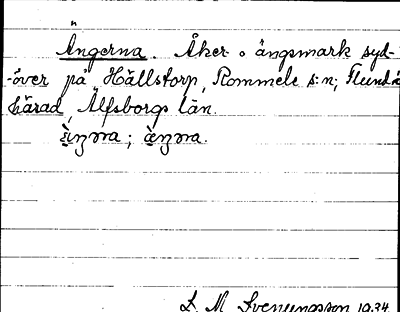 Ängerna. Åker o ängsmark syd-
-över på Hällstorp, Rommele s:n; Flundre
härad, Älfsborgs län.
L. M. Svenungsson 1934.